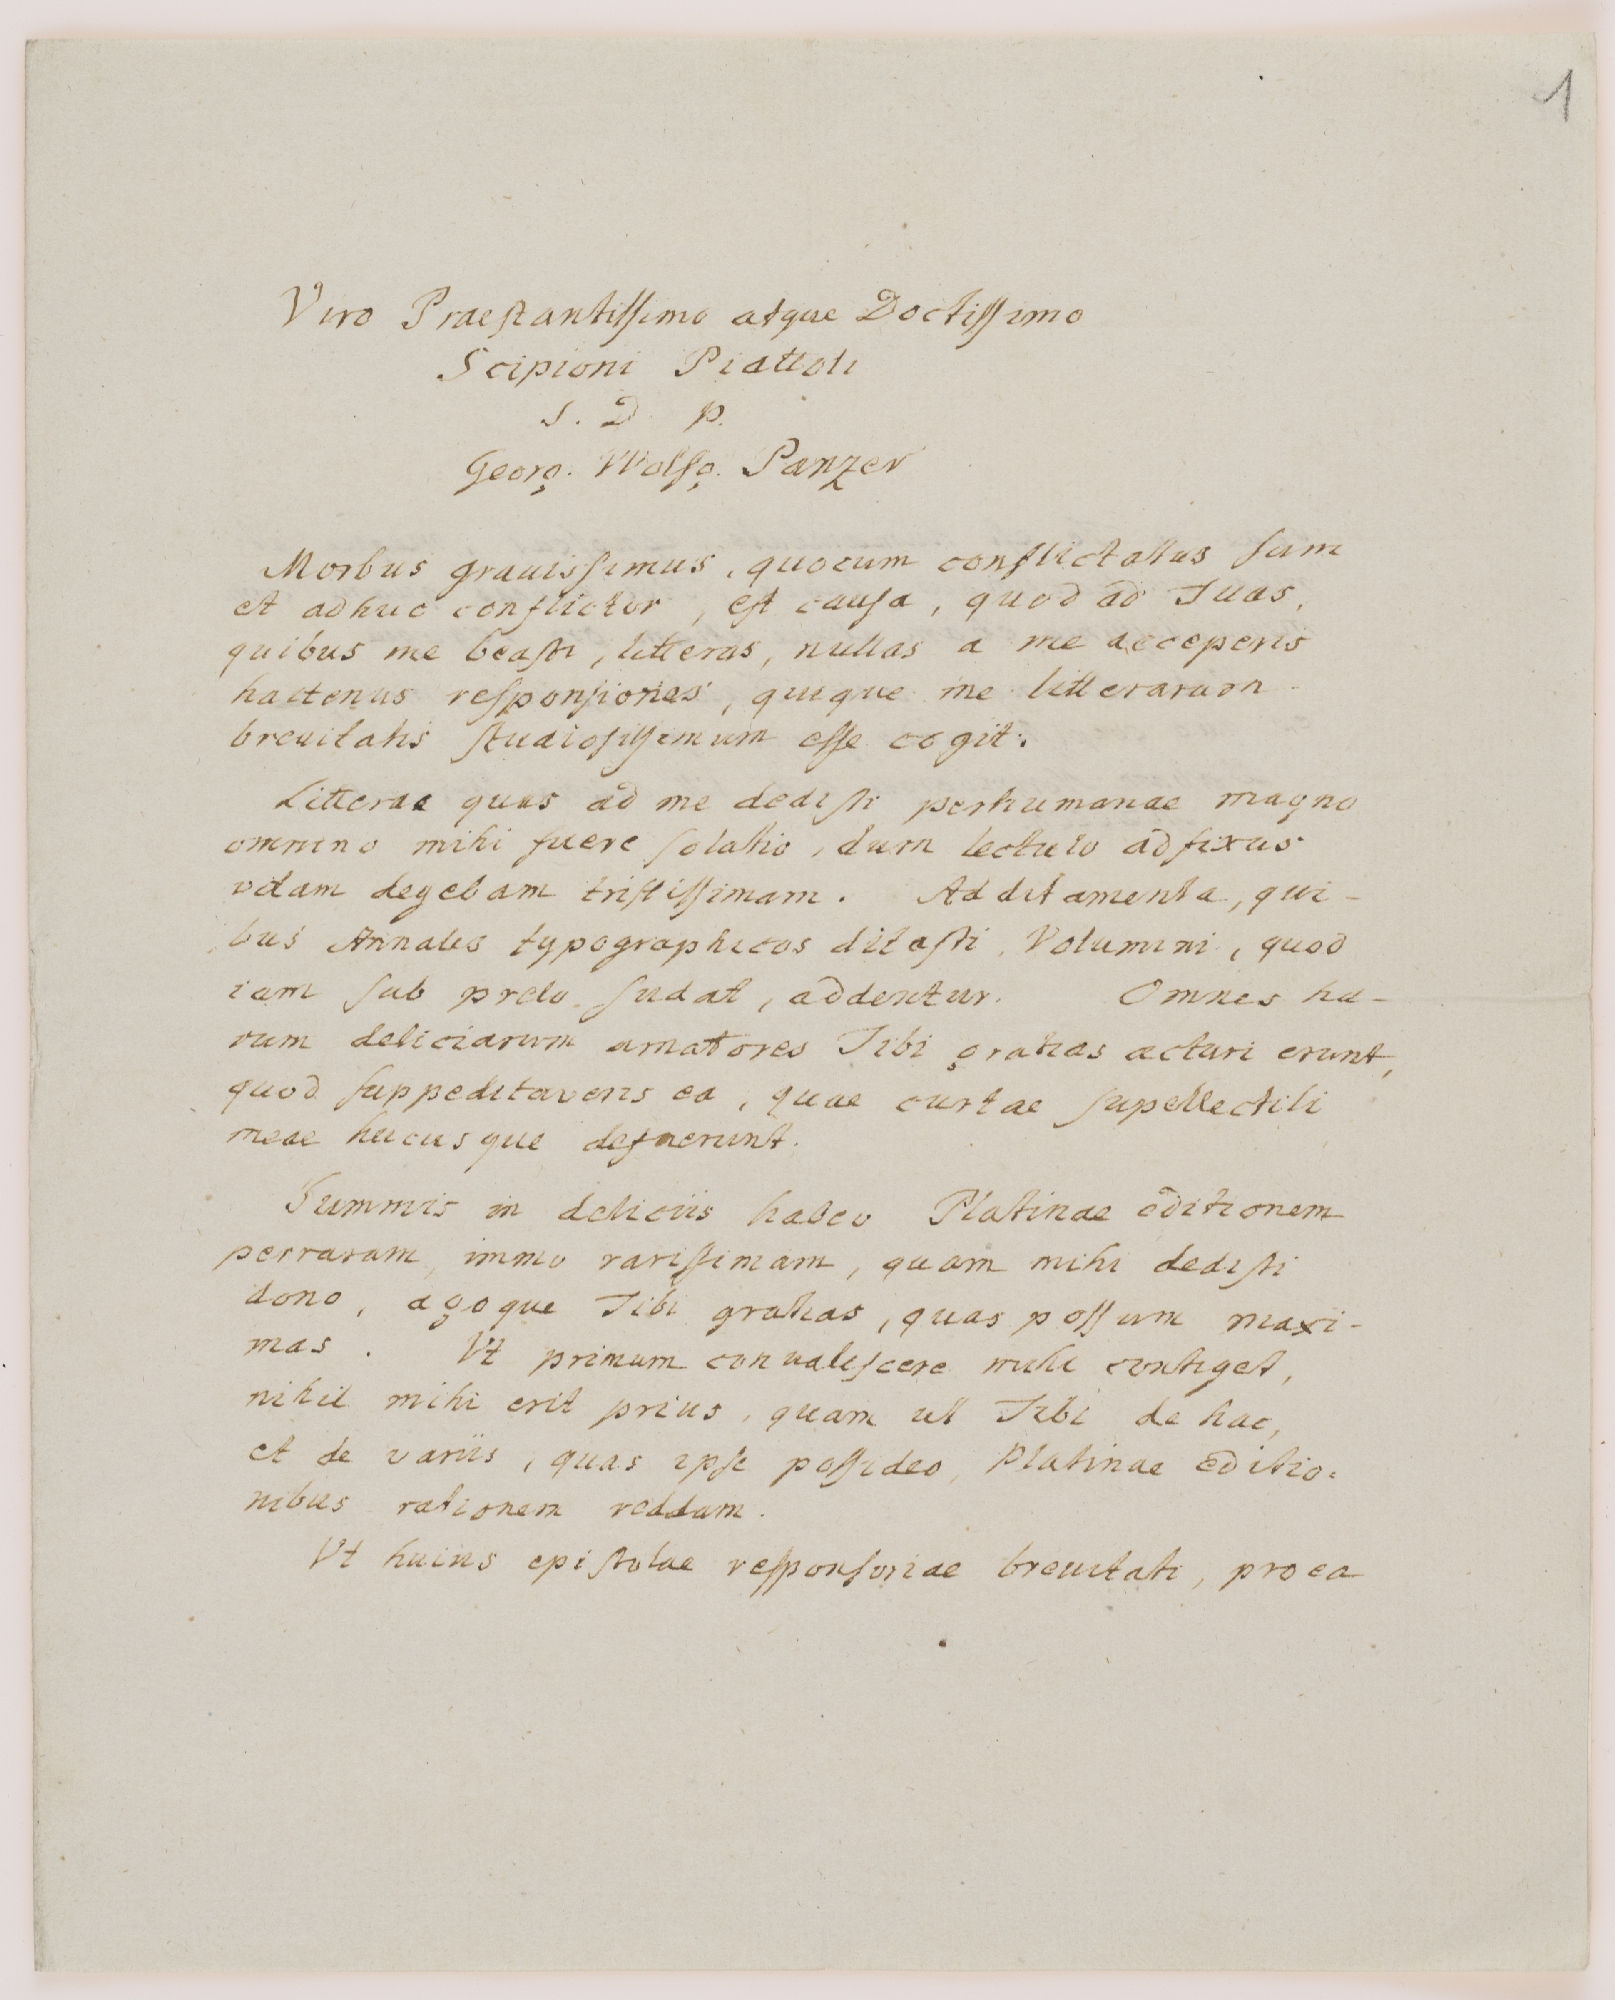 1
Viro Praestantissimo atque Doctissimo
Scipioni Piattoli
S. D. p.
Georg. Wolfg. Panzer
Morbus grauissimus, quocum conflictatus sum
et adhuc conflictor, est causa, quod ad Tuas,
quibus me beasti, litteras, nullas a me acceperis
hactenus responsiones, quique me litterarum
breuitatis studiosissimum esse cogit.
Litterae quas ad me dedisti perhumanae magno
omnino mihi fuere solatio, dum lectulo adfixus
vitam degebam tristissimam. Additamenta, qui-
bus Annales typographicos ditasti, Volumini, quod
iam sub prelo sudat, addentur. Omnes ha-
rum deliciarum amatores Tibi gratias acturi erunt,
quod suppeditaveris ea, quae curtae supellectili
meae hucusque defuerunt.
Summis in deliciis habeo Platinae editionem
perraram, immo rarissimam, quam mihi dedisti
dono, agoque Tibi gratias, quas possum maxi-
mas. Vt primum conualescere mihi contiget,
nihil mihi erit prius, quam ut Tibi de hac,
et de variis, quas ipse possideo, Platinae editio-
nibus rationem reddam.
Vt huius epistolae responsoriae breuitati, pro ea